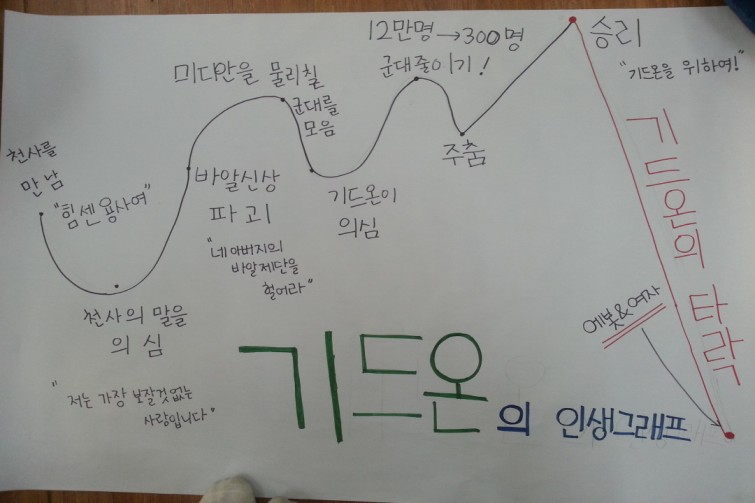 천사를
만남
"힘센용사여"
천사의 말을
의 심
"저는 가장 보잘것없는
사람입니다"
바알신상
파 괴
"네아버지의
바알제단을
헐어라"
미디안을 물리칠
군대를
모음
기드온이
의심
12만명→300명
군대줄이기!
주춤
승리
"기드온을 위하여!"
기드온의 타락
에봇&여자
기드온의 인생그래프